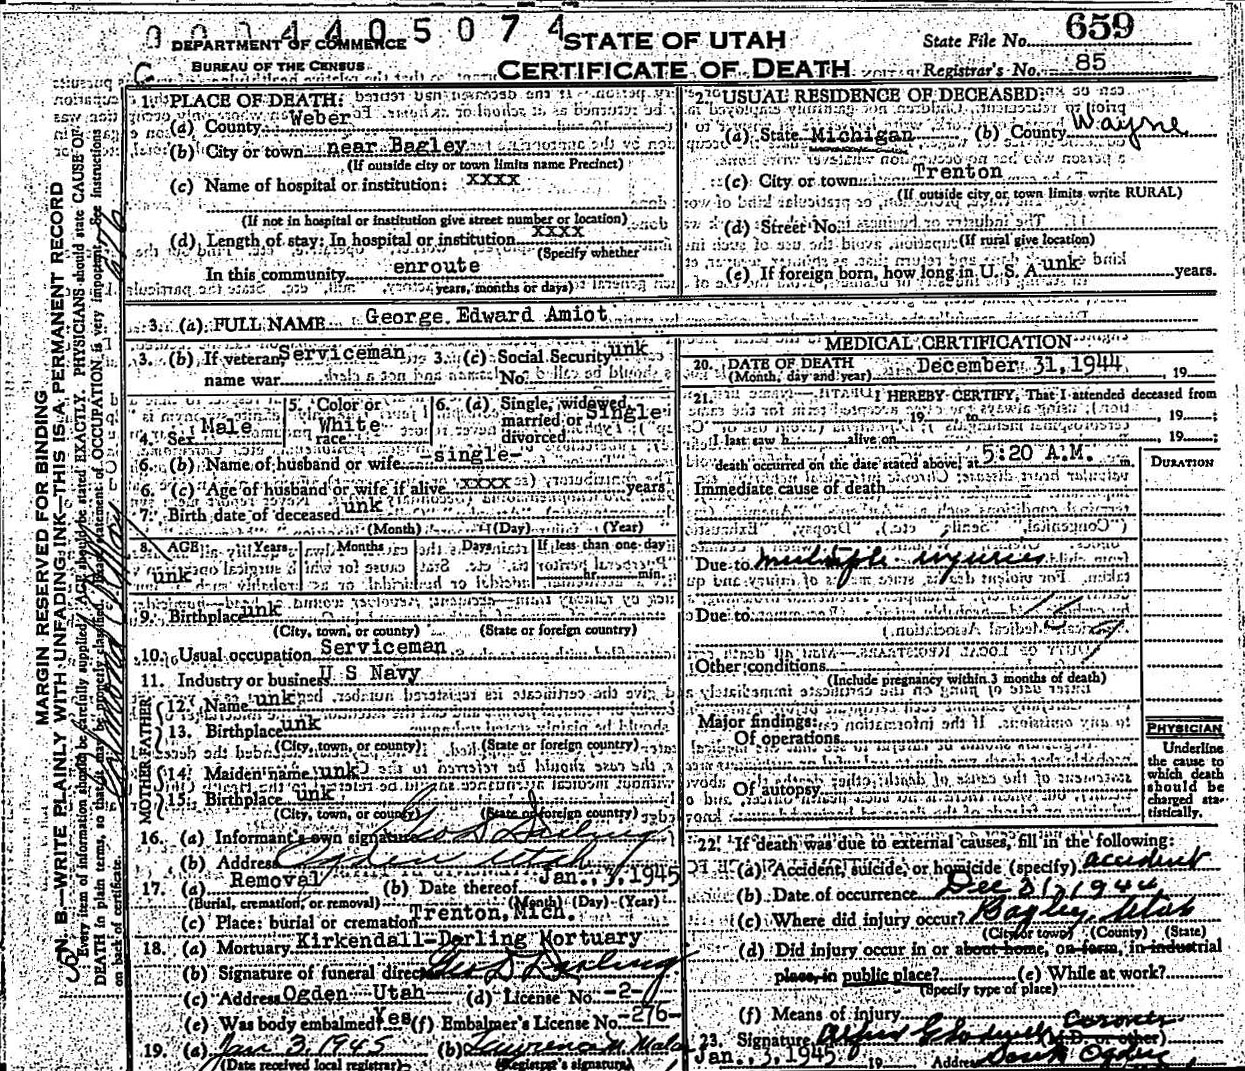 0004405074
DEPARTMENT OF COMMERCE
BUREAU OF THE CENSUS
STATE OF UTAH
CERTIFICATE OF DEATH
State File No. 659
Registrar's No. 85
MARGIN RESERVED FOR BINDING
N. B.—WRITE PLAINLY WITH UNFADING INK—THIS IS A PERMANENT RECORD
Every item of information should be carefully supplied. AGE should be stated EXACTLY. PHYSICIANS should state CAUSE OF
DEATH in plain terms, so that it may be properly classified. Exact statement of OCCUPATION is very important. See instructions
on back of certificate.
1. PLACE OF DEATH:
(a) County Weber
(b) City or town near Bagley
(If outside city or town limits name Precinct)
(c) Name of hospital or institution: xxxx
(If not in hospital or institution give street number or location)
(d) Length of stay: In hospital or institution xxxx
(Specify whether
In this community enroute
years, months or days)
2. USUAL RESIDENCE OF DECEASED:
(a) State Michigan (b) County Wayne
(c) City or town Trenton
(If outside city or town limits write RURAL)
(d) Street No.
(If rural give location)
(e) If foreign born, how long in U. S. A unk years.
3. (a) FULL NAME George Edward Amiot
3. (b) If veteran, Serviceman 3. (c) Social Security unk
name war No.
4. Sex Male 5. Color or race White 6. (a) Single, widowed, married or divorced Single
6. (b) Name of husband or wife -single-
6. (c) Age of husband or wife if alive xxxx years
7. Birth date of deceased unk
(Month) (Day) (Year)
8. AGE Years Months Days If less than one day
unk hr. min.
9. Birthplace unk
(City, town, or county) (State or foreign country)
10. Usual occupation Serviceman
11. Industry or business U S Navy
FATHER
12. Name unk
13. Birthplace unk
(City, town, or county) (State or foreign country)
MOTHER
14. Maiden name unk
15. Birthplace unk
(City, town, or county) (State or foreign country)
16. (a) Informant's own signature Geo D Darling
(b) Address Ogden Utah
17. (a) Removal (b) Date thereof Jan., 3, 1945
(Burial, cremation, or removal) (Month) (Day) (Year)
(c) Place: burial or cremation Trenton, Mich.
18. (a) Mortuary Kirkendall-Darling Mortuary
(b) Signature of funeral director Geo D Darling
(c) Address Ogden Utah (d) License No. -2-
(e) Was body embalmed? Yes (f) Embalmer's License No. -276-
19. (a) Jan 3, 1945 (b) Lawrence N Malan
(Date received local registrar) (Registrar's signature)
MEDICAL CERTIFICATION
20. DATE OF DEATH December 31, 1944 , 19
(Month, day and year)
21. I HEREBY CERTIFY, That I attended deceased from
, 19 to , 19 ;
I last saw h alive on , 19 ;
death occurred on the date stated above, at 5:20 A.M. m.
DURATION
Immediate cause of death
Due to multiple injuries
Due to
Other conditions
(Include pregnancy within 3 months of death)
Major findings:
Of operations
Of autopsy
PHYSICIAN
Underline
the cause to
which death
should be
charged sta-
tistically.
22. If death was due to external causes, fill in the following:
(a) Accident, suicide, or homicide (specify) accident
(b) Date of occurrence Dec 31, 1944
(c) Where did injury occur? Bagley Utah
(City or town) (County) (State)
(d) Did injury occur in or about home, on farm, in industrial
place, in public place? (e) While at work?
(Specify type of place)
(f) Means of injury
23. Signature Coroner
(M.D. or other)
Jan., 3, 1945 19 Address South Ogden